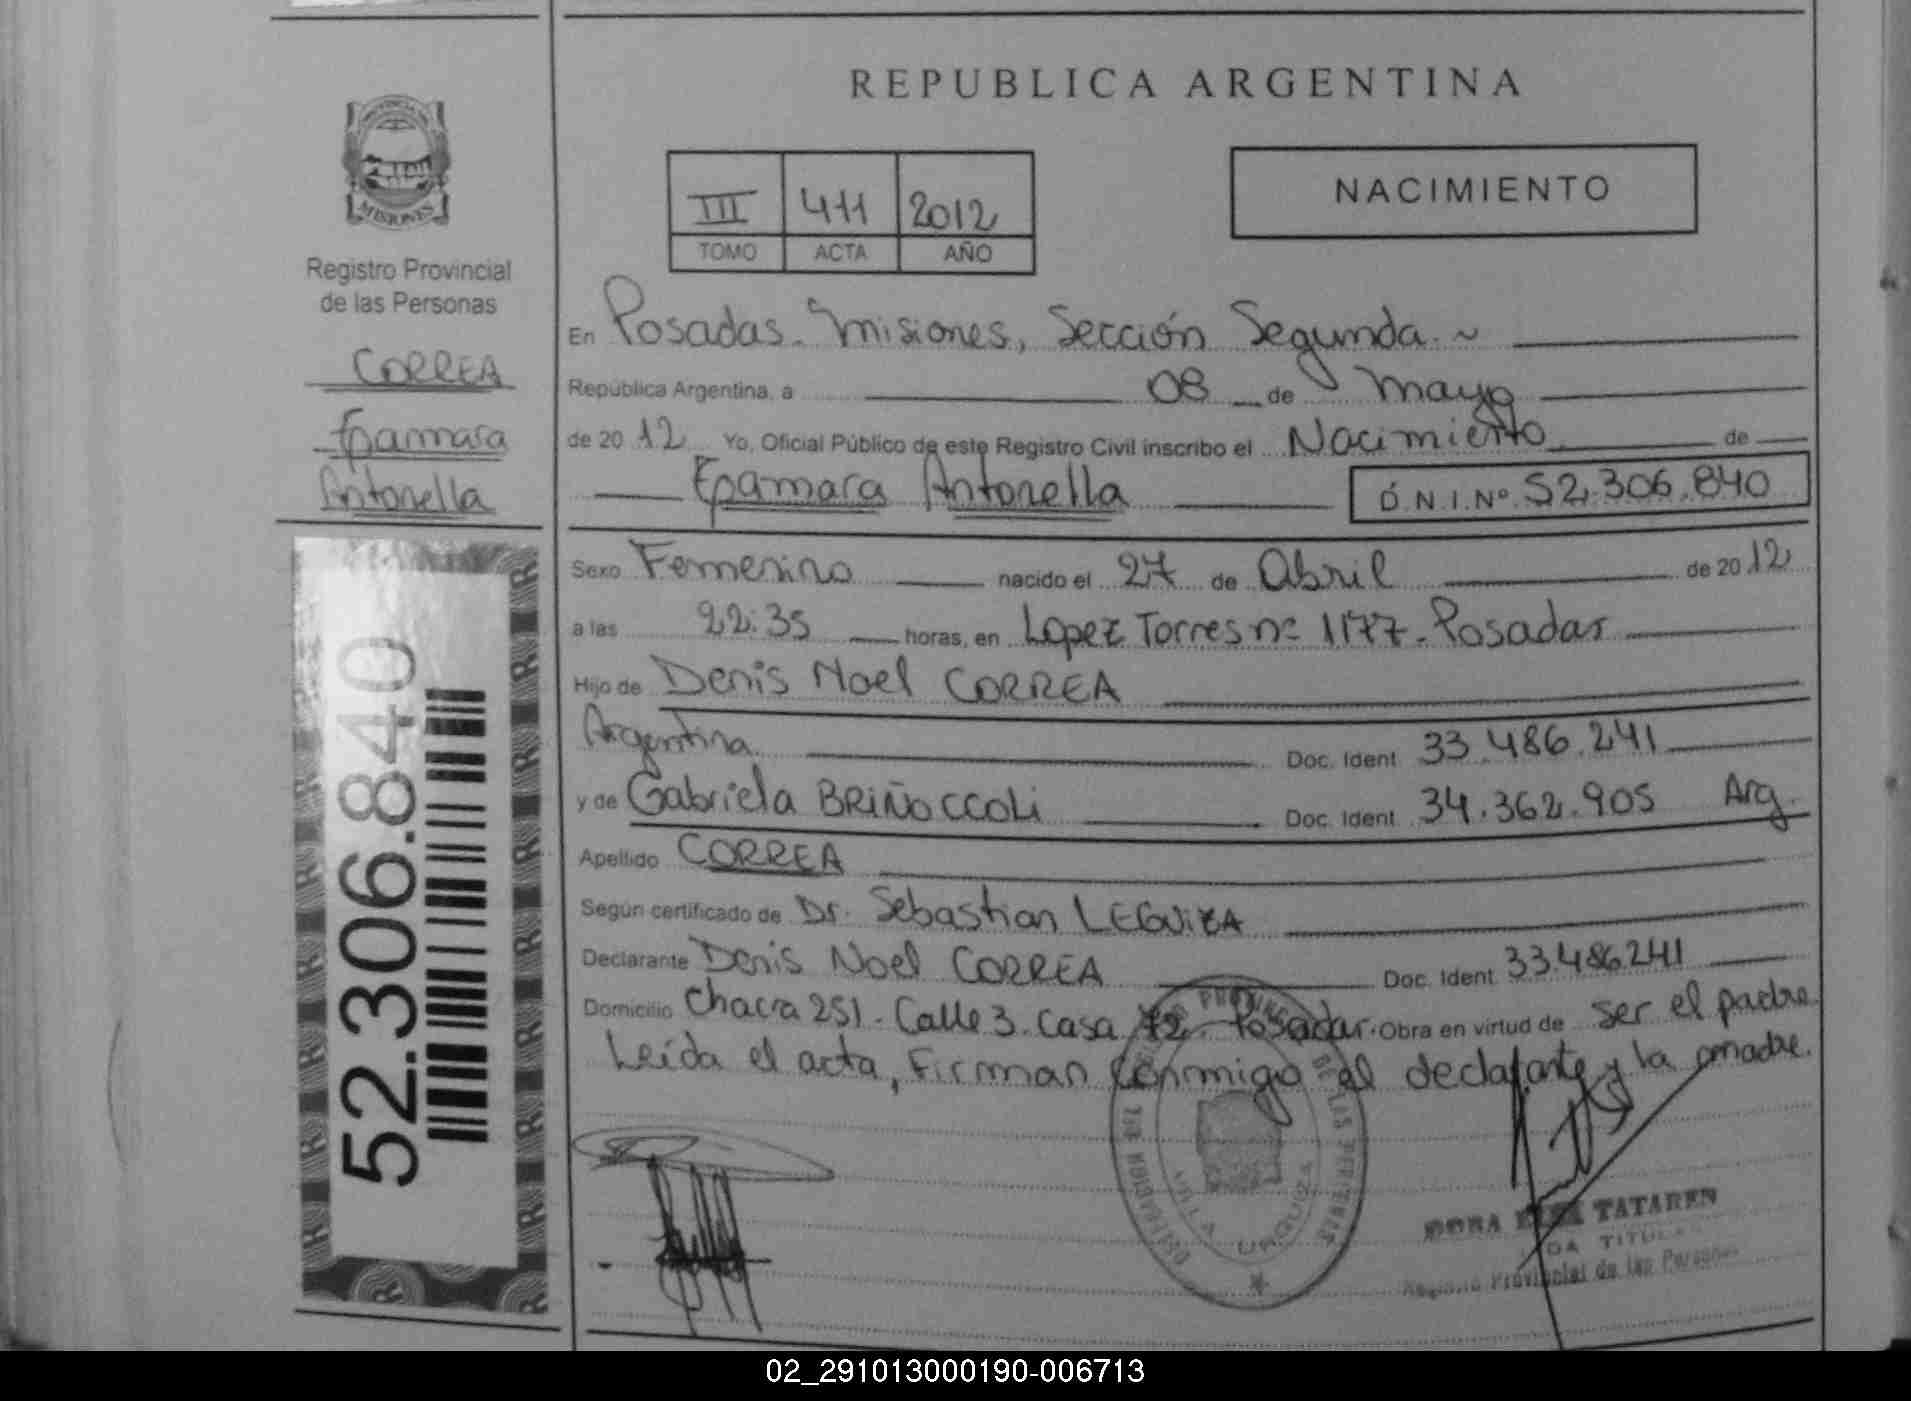 REPUBLICA ARGENTINA
PROVINCIA DE
MISIONES
Registro Provincial
de las Personas
CORREA
Epamara
Antonella
52.306.840
III 411 2012
TOMO ACTA AÑO
NACIMIENTO
En Posadas. Misiones, Sección Segunda. ~
República Argentina, a 08 de Mayo
de 2012 Yo, Oficial Público de este Registro Civil inscribo el Nacimiento de
Epamara Antonella D.N.I.Nº 52.306.840
Sexo Femenino nacido el 27 de Abril de 2012
a las 22:35 horas, en Lopez Torres nº 1177. Posadas
Hijo de Denis Noel CORREA
Argentina Doc. Ident. 33.486.241
y de Gabriela BRIÑOCCOLI Doc. Ident. 34.362.905 Arg.
Apellido CORREA
Según certificado de Dr. Sebastian LEGUIZA
Declarante Denis Noel CORREA Doc. Ident. 33.486241
Domicilio Chacra 251. Calle 3. Casa 72. Posadas. Obra en virtud de ser el padre.
Leída el acta, Firman conmigo el declarante y la madre.
REGISTRO PROVINCIAL DE LAS PERSONAS
VILLA URQUIZA
TATAREN
Registro Provincial de las Personas
02_291013000190-006713